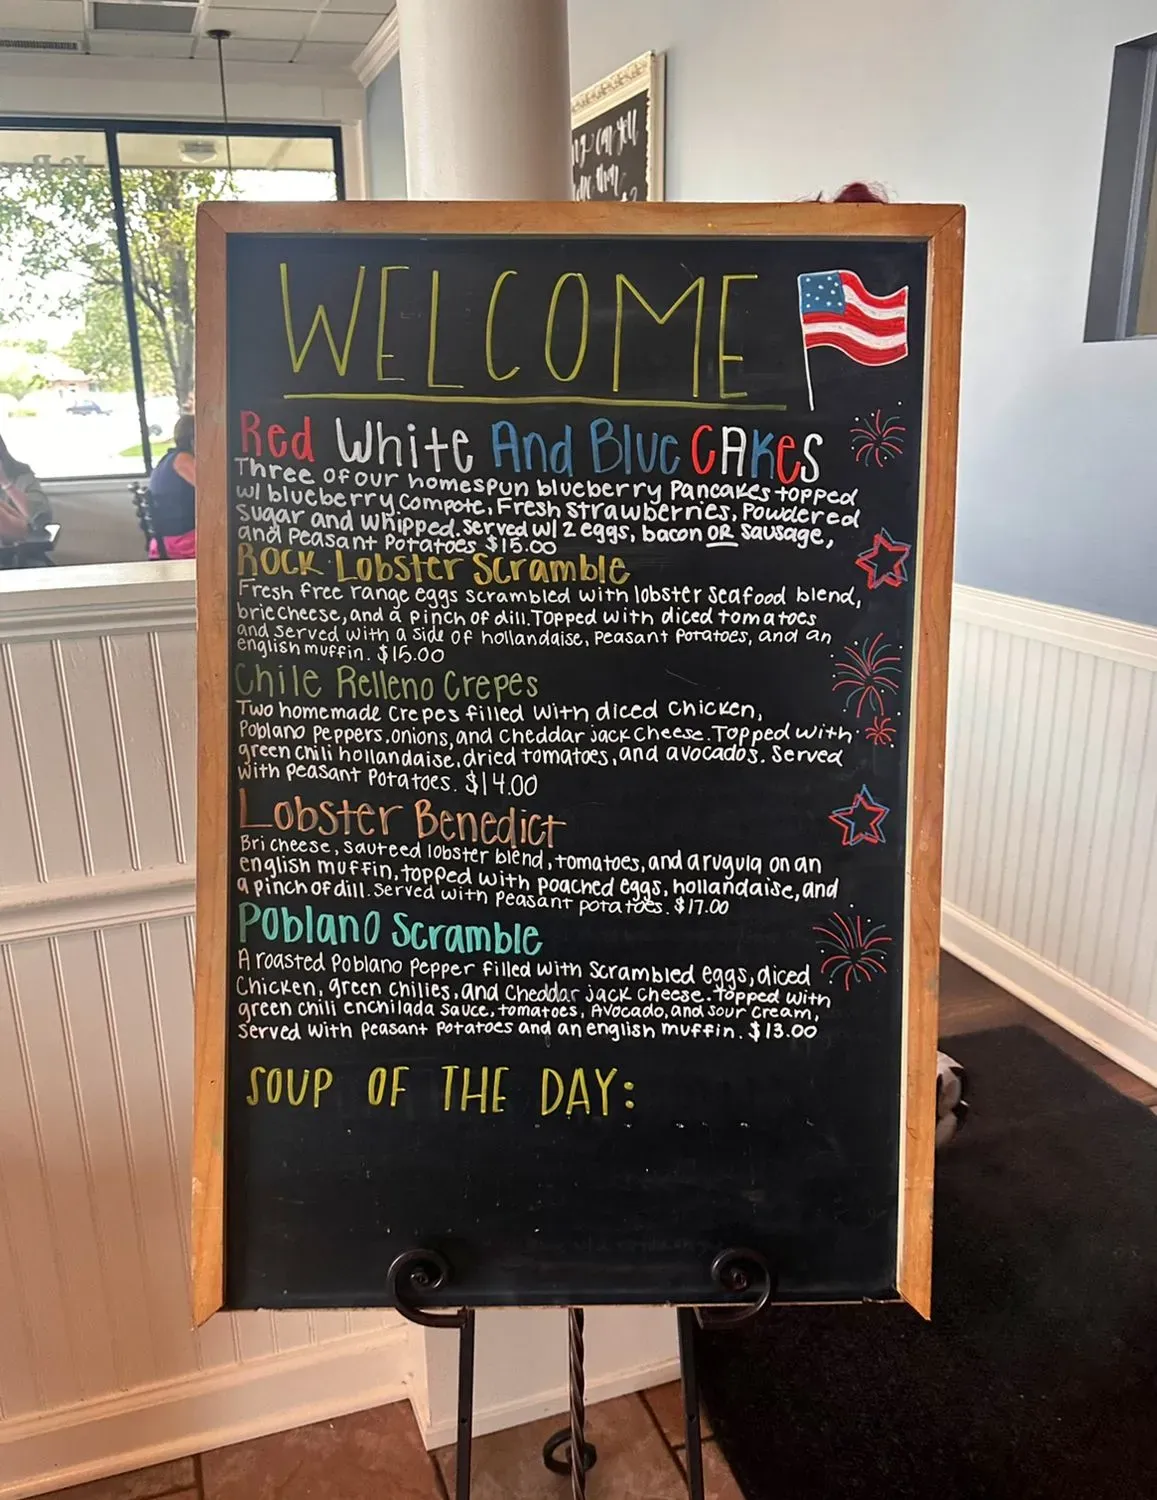 can you
than
WELCOME
Red White And Blue CAKES
Three of our homespun blueberry Pancakes topped
w/ blueberry compote, Fresh strawberries, Powdered
sugar and whipped. served w/ 2 eggs, bacon OR sausage,
and Peasant Potatoes $15.00
ROCK Lobster Scramble
Fresh free range eggs scrambled with lobster seafood blend,
brie cheese, and a pinch of dill. Topped with diced tomatoes
and served with a side of hollandaise, Peasant Potatoes, and an
english muffin. $15.00
Chile Relleno Crepes
Two homemade Crepes filled with diced chicken,
Poblano peppers, onions, and Cheddar jack Cheese. Topped with
green chili hollandaise, dried tomatoes, and avocados. Served
with peasant Potatoes. $14.00
Lobster Benedict
Bri cheese, sauteed lobster blend, tomatoes, and arugula on an
english muffin, topped with poached eggs, hollandaise, and
a pinch of dill. served with peasant potatoes. $17.00
Poblano Scramble
A roasted Poblano Pepper filled with Scrambled eggs, diced
Chicken, green chilies, and Cheddar jack Cheese. Topped with
green chili enchilada sauce, tomatoes, Avocado, and sour cream,
served with Peasant Potatoes and an english muffin. $13.00
SOUP OF THE DAY: